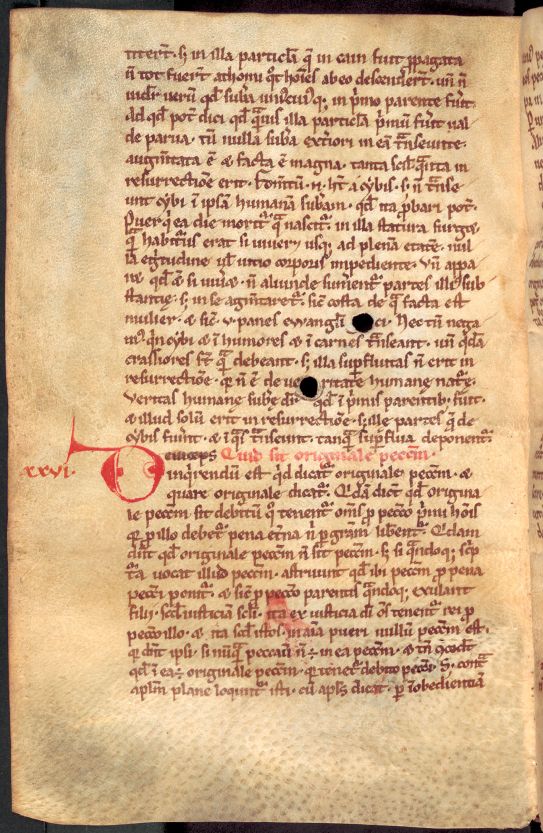 titerr̄t. ſꝫ in illa particl̄a q̄ in eam fuit ꝓpagata
n̄ tot fuerr̄t athomi q̊t hoīeſ ab eo deſcender̄t. un̄ n̄
uidet̉ uerū qd̄ ſub̄a uniꝰcuiꝰq; in p̉mo parente fuit.
Ad qd̄ pot̄ dici qd̄ quis illa particl̄a p̉mū fuit̄ ual
de parua. tū nulla ſub̄a ext̉iori in eā tranſeunte.
augm̄tata ē & facta ē magna. tanta ſcil̄ q̄tita in
reſurrectiōe erit. fom̄tū .n. hn̄t a cybiſ. ſꝫ n̄ tranſe
unt cybi ī ipſā humanā ſub̄am. qd̄ ita ꝓbari pot̄.
Puer q̉ ea die morit̉ qua naſcit̉. in illa ſtatura ſurget
quā habit̉uſ erat ſi uiuer̄ uſq; ad plenā etatē. nul
la egritudine ul̄ uitio corporiſ impediente. Vn̄ appa
re. qd̄ & ſi uiueret n̄ aliunde ſumerent̉ parteſ illiꝰ ſub
ſtantię. ſꝫ in ſe augm̄taret̉. ſic̄ coſta de qua facta eſt
mulier. & ſic̄ .v. paneſ ewangl̄ ci. Nec tū nega
muſ q̉n cybi & ī humoreſ & ī carneſ tranſeant. un̄ q̉dā
craſſioreſ ſt̄ quā debeant. ſꝫ illa ſuꝑfluitaſ n̄ erit in
reſurrectiōe. q̉ n̄ ē de ueritate humanę nat̉ę.
Veritaſ humanę ſub̄ę dr̄ qd̄ ī p̉miſ parentib; fuit.
& illud ſolū erit in reſurrectiōe. ſꝫ ille parteſ q̄ de
cybiſ fuint. & ī q̉ſ tranſeunt. tanquā ſuꝑflua deponent̉.
Deincepſ Quid ſit originale peccm̄.
xxvi. inq̉rendū eſt q̉d dicat̉ originale peccm̄. &
quare originale dicat̉. Q̉dā dicn̄t qd̄ origina
le peccm̄ ſit debitū quo tenent̉ om̄ſ ꝓ pecc̄o p̉mi hoīſ
q̉ ꝓ illo debet̉ pena et̄na n̄ ꝑ gratiam liberent̉. Q̉dam
dn̄t qd̄ originale peccm̄ n̄ ſit peccm̄. ſꝫ ſi quandoq; ſcp̉
t̉a uocat illud peccm̄. aſtruunt qd̄ ibi peccm̄ ꝓ pena
pecc̄i ponit̉. & ſic̄ ꝓ pecc̄o parentiſ quandoq; exulant
filii. ſcd̄m iuſticiam ſcl̄i. ita ex iuſticia dī oſ̄ tenent̉ rei ꝓ
pecc̄o illo. & ita ſcd̄m iſtoſ. in aīa pueri nullū peccm̄ eſt.
q̉ dn̄t ipſi. ſi nunquā peccauit n̄ ē in ea peccm̄. & tn̄ ꝯcedūt
qd̄ ī ea ē originale peccm̄. q̉ tenet̉ debito pecc̄i. S; contra
apl̄m plane loquunt̉ iſti. cū apl̄s dicat. ꝑ īobedientiā